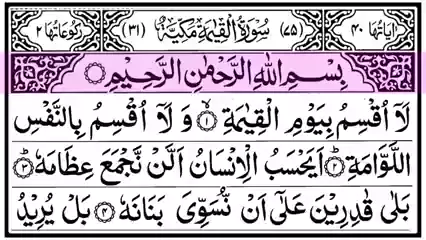 اٰیَاتُهَا ۴۰ (۷۵) سُوْرَةُ الْقِیٰمَةِ مَكِّیَّةٌ (۳۱) رُكُوْعَاتُهَا ۲
بِسْمِ اللّٰهِ الرَّحْمٰنِ الرَّحِیْمِ
لَاۤ اُقْسِمُ بِیَوْمِ الْقِیٰمَةِ ۙ﴿۱﴾ وَ لَاۤ اُقْسِمُ بِالنَّفْسِ
اللَّوَّامَةِ ؕ﴿۲﴾ اَیَحْسَبُ الْاِنْسَانُ اَلَّنْ نَّجْمَعَ عِظَامَهٗ ؕ﴿۳﴾
بَلٰى قٰدِرِیْنَ عَلٰۤى اَنْ نُّسَوِّیَ بَنَانَهٗ ﴿۴﴾ بَلْ یُرِیْدُ